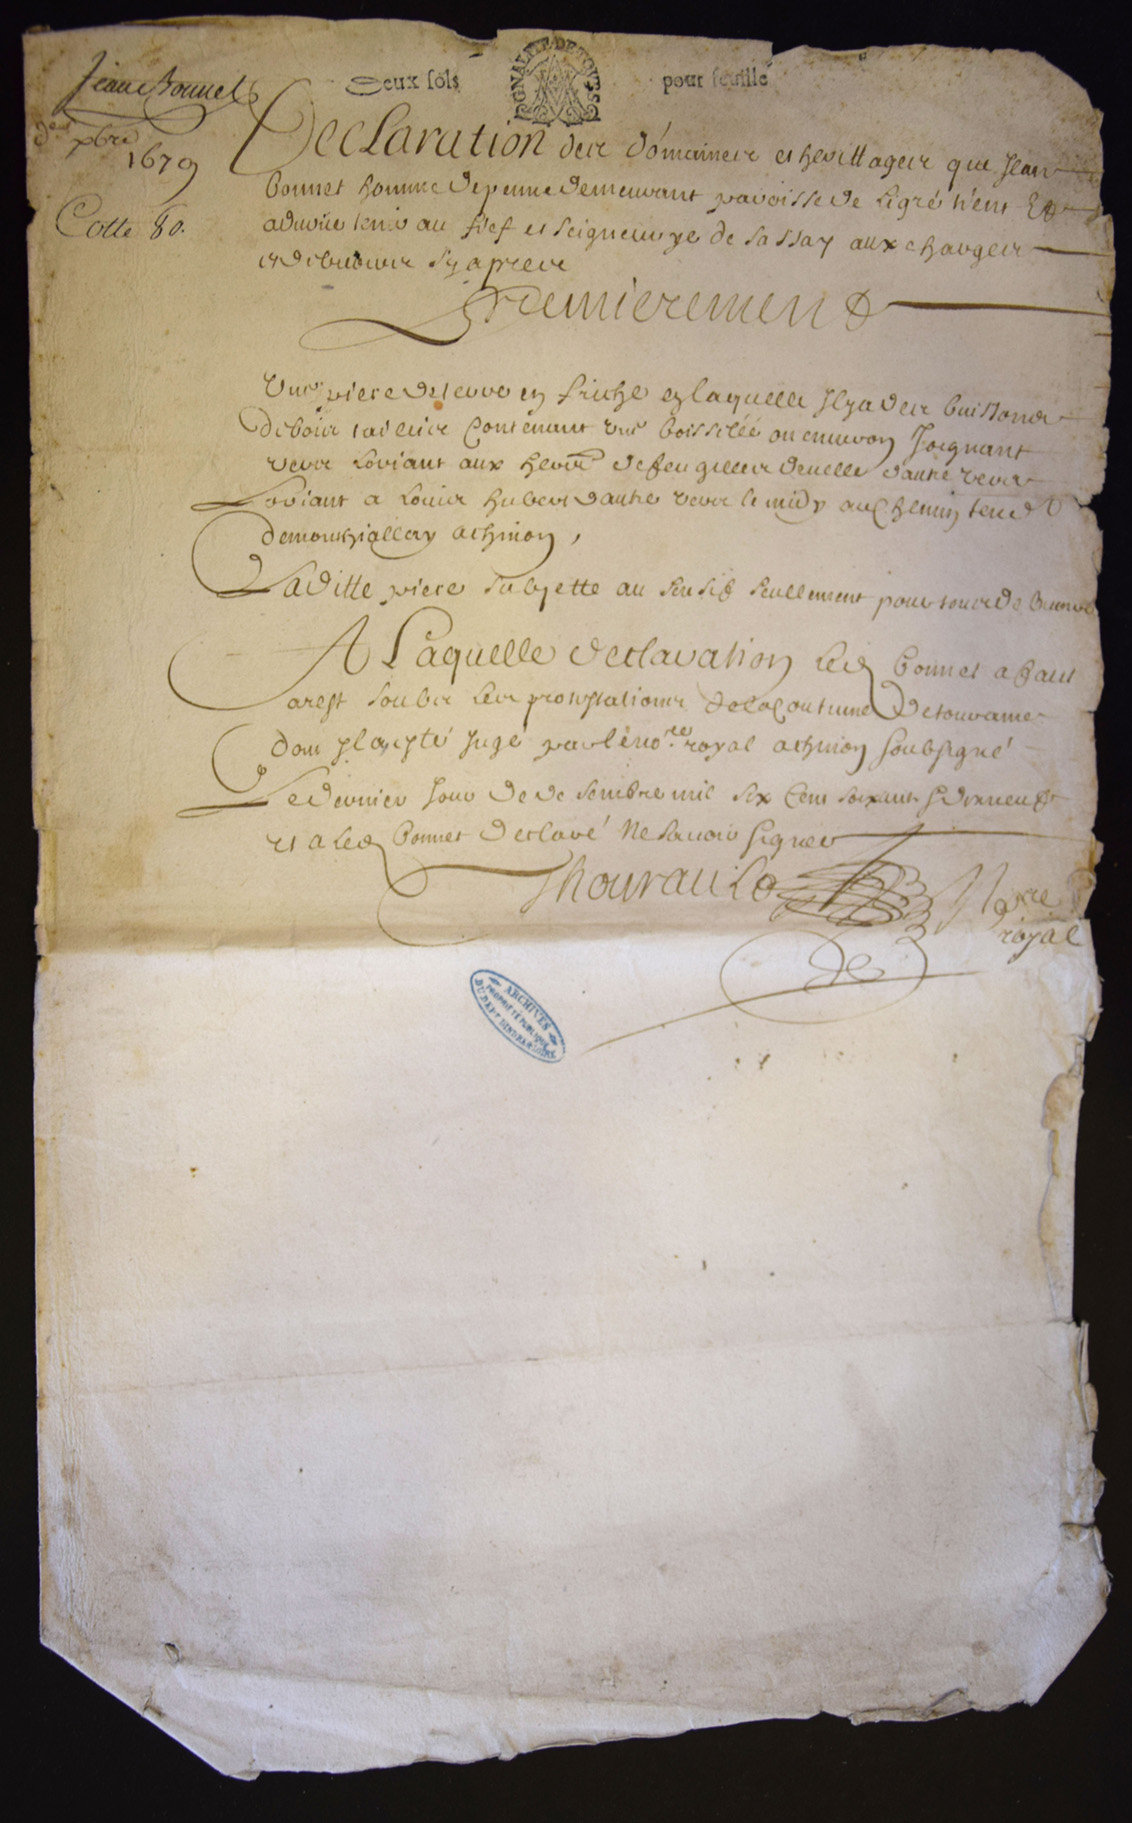 Jean Bonnet
deux sols
GNALITE DE TOVRS
pour feuille
xbre
1679
Cotte 80.
Declaration des domaines et herittages que Jean
Bonnet homme de peinne demeurant paroisse de Ligré tient Et
advoue tenir au fief et seigneurye de Sassay aux charges
et debvoirs sy apres
Premierement
Une piece de terre en friche en laquelle Il y a des buissons
de bois taillis Contenant une boissellée ou environ Joignant
vers Loriant aux hers de feu gilles d'autre vers
Loriant a Louis hubert d'autre vers le midy au Chemin tend
de a chinon,
Laditte piece subjette au sensif seullement pour tous de
A Laquelle declaration led Bonnet a faict
arest soubs les protestations de la Coutume de touraine
dont Il a esté Jugé par le nore royal a chinon soubsigné
Le dernier Jour de desembre mil six Cens soixante Et dixneuf
et a led Bonnet declaré Ne savoir signer
Nore
royal
ARCHIVES
PROPRIÉTÉ PUBLIQUE
DU DEPT D'INDRE & LOIRE